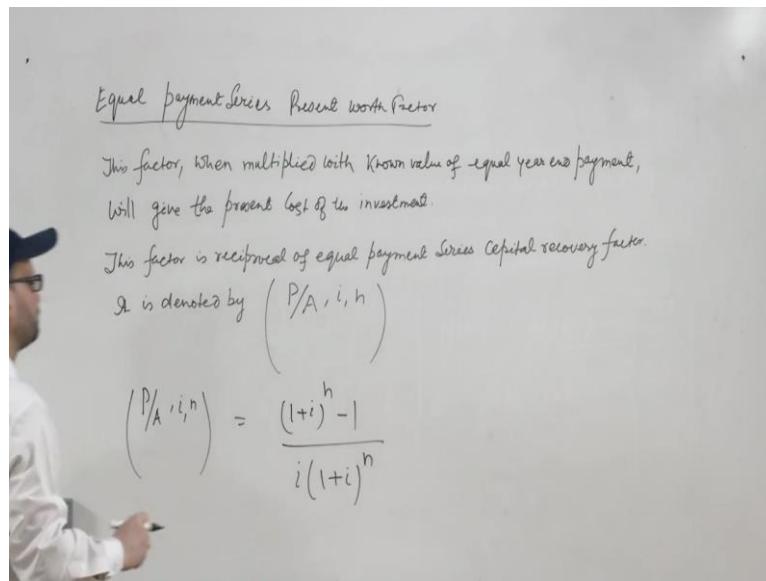 Equal payment Series Present worth Factor
This factor, when multiplied with known value of equal year end payment,
will give the present cost of the investment.
This factor is reciprocal of equal payment series capital recovery factor.
It is denoted by (P/A, i, n)
(P/A, i, n) = ((1+i)^n - 1) / (i(1+i)^n)